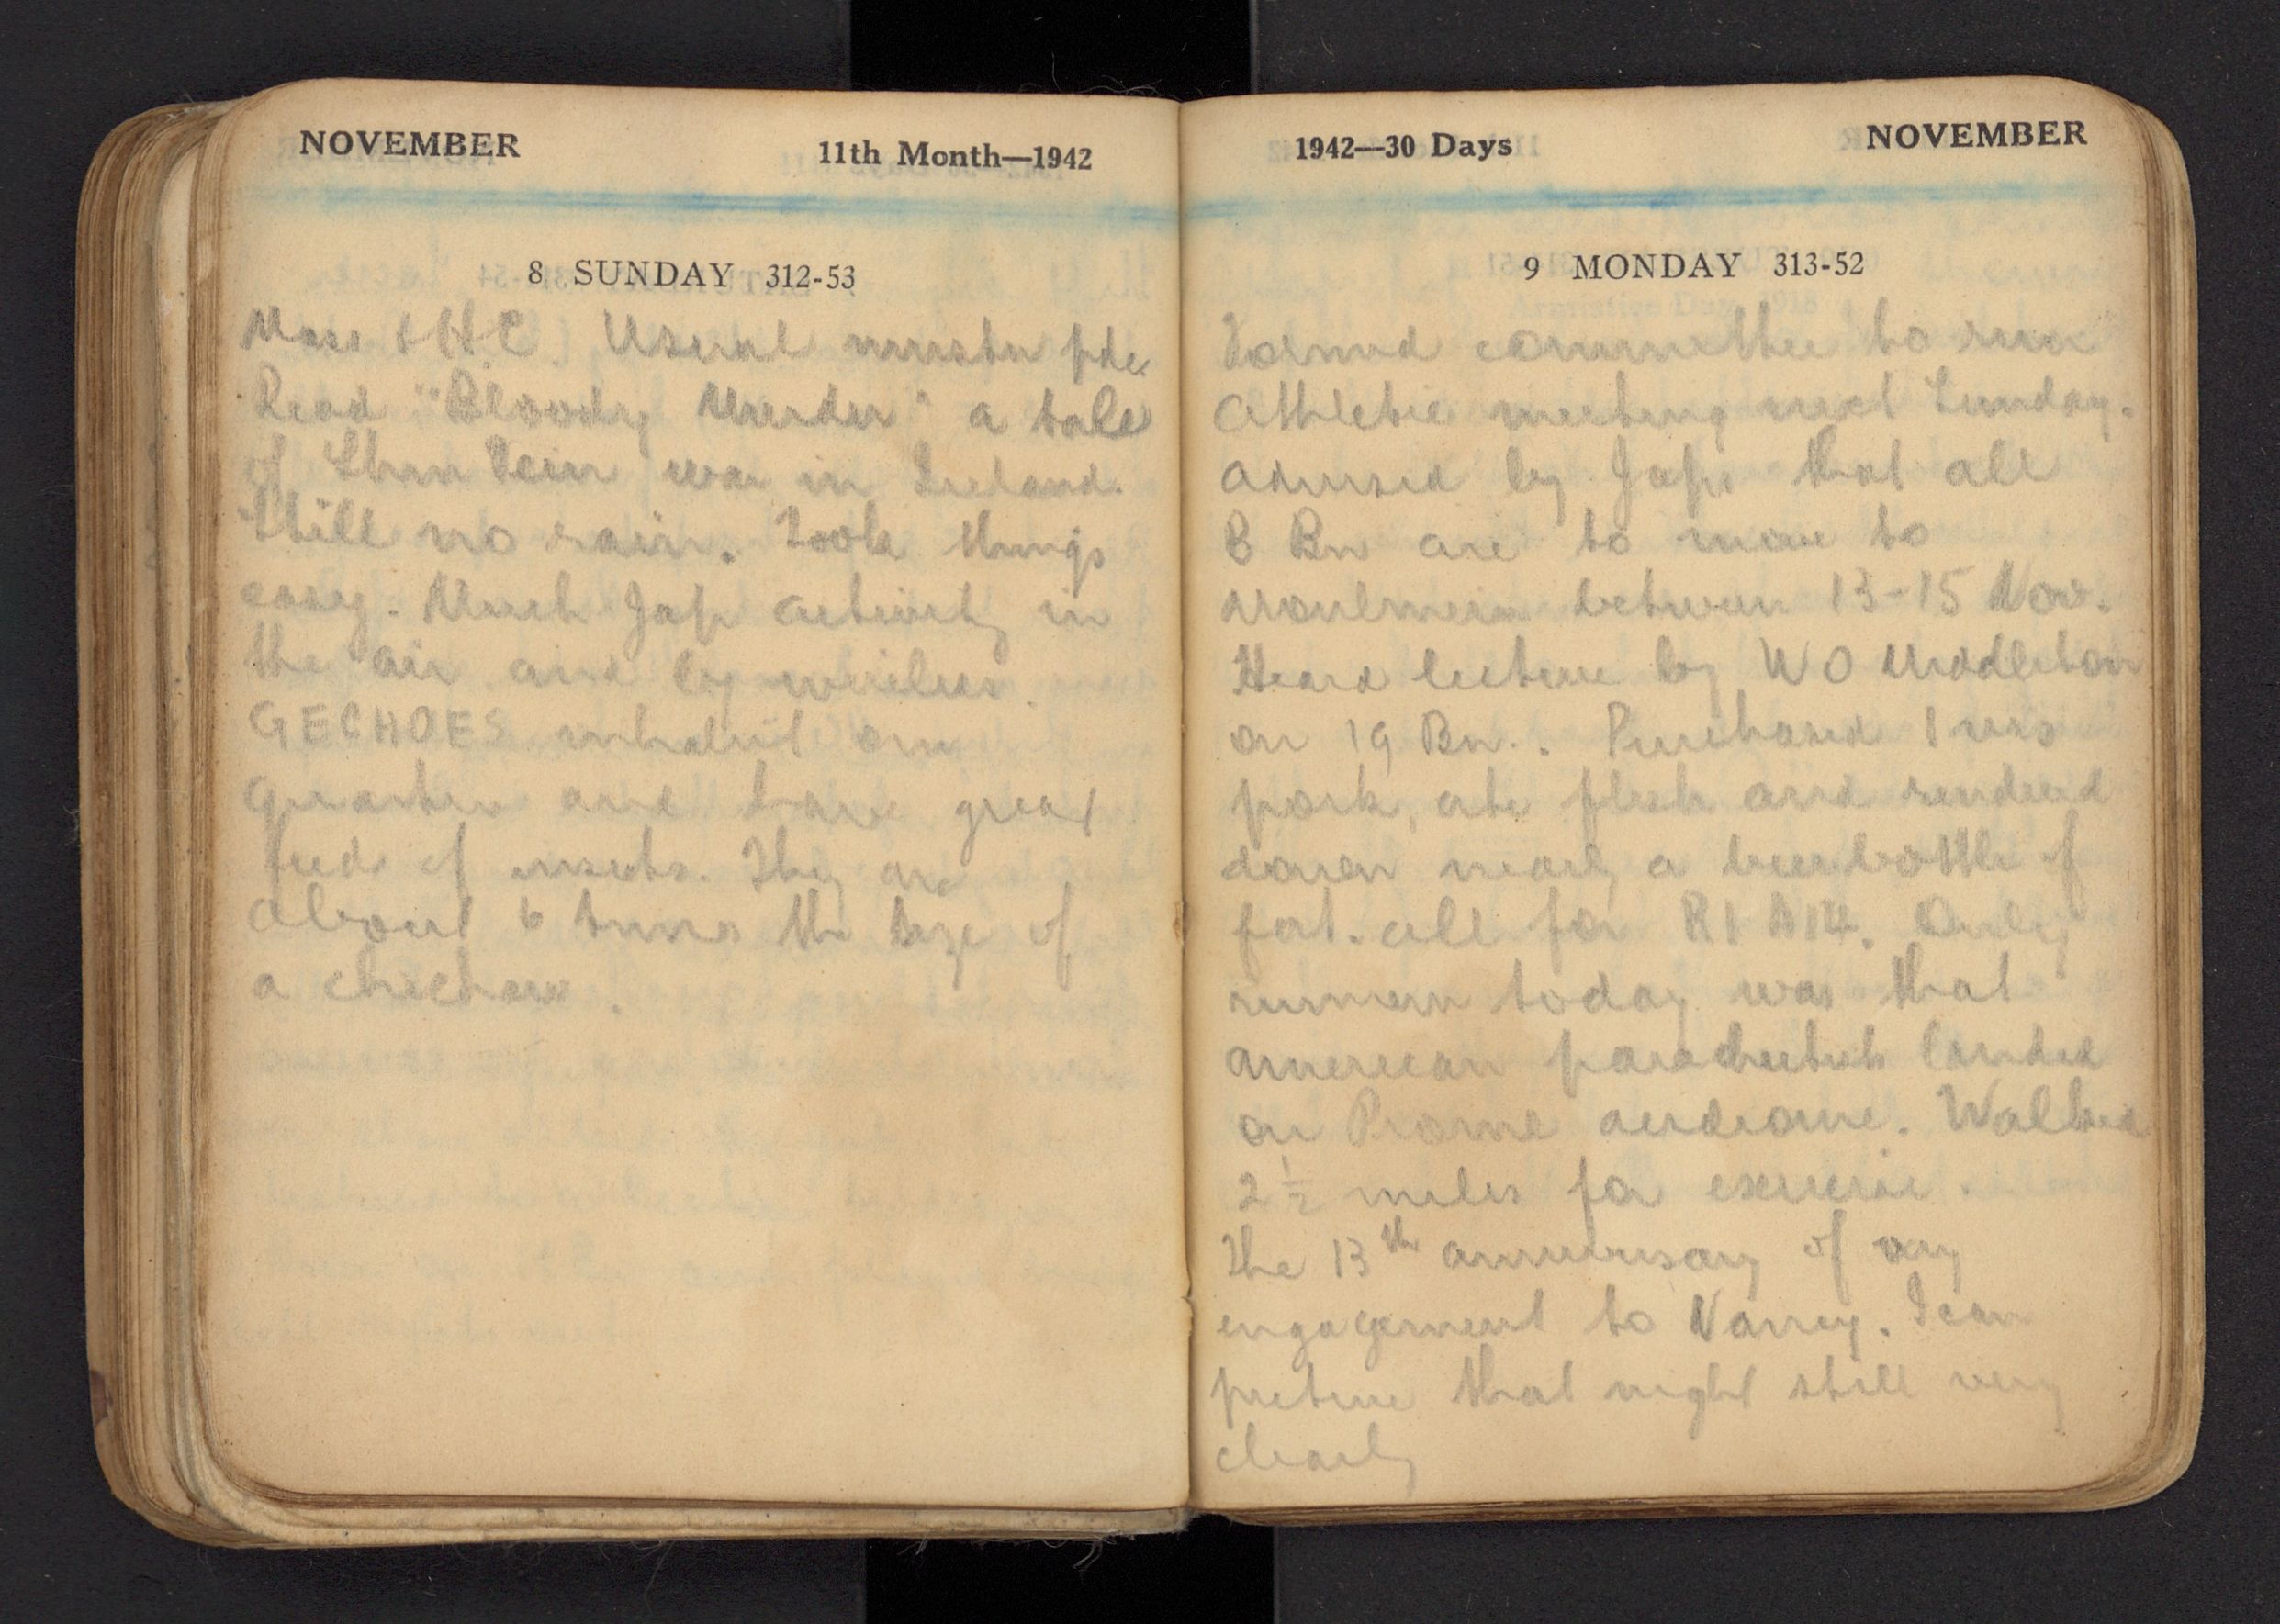 NOVEMBER 11th Month—1942
8 SUNDAY 312-53
Mass & HC. Usual muster pde.
Read "Bloody Murder" a tale
of Shin Fein war in Ireland.
Still no rain. Took things
easy. Much Jap activity in
the air and by wireless.
GECHOES inhabit our
quarters and have great
feeds of insects. They are
about 6 times the size of
a chichaw.
1942—30 Days NOVEMBER
9 MONDAY 313-52
Formed committee to run
Athletic meeting next Sunday.
Advised by Japs that all
B Bn are to move to
Moulmein between 13-15 Nov.
Heard lecture by WO Middleton
on 19 Bn.. Purchased 1 viss
pork, ate flesh and rendered
down nearly a beer bottle of
fat. all for R1 A14. Only
rumour today was that
American parachutists landed
on Prome aerdrome. Walked
2 ½ miles for exercise.
The 13th anniversary of my
engagement to Nancy. I can
picture that night still very
clearly